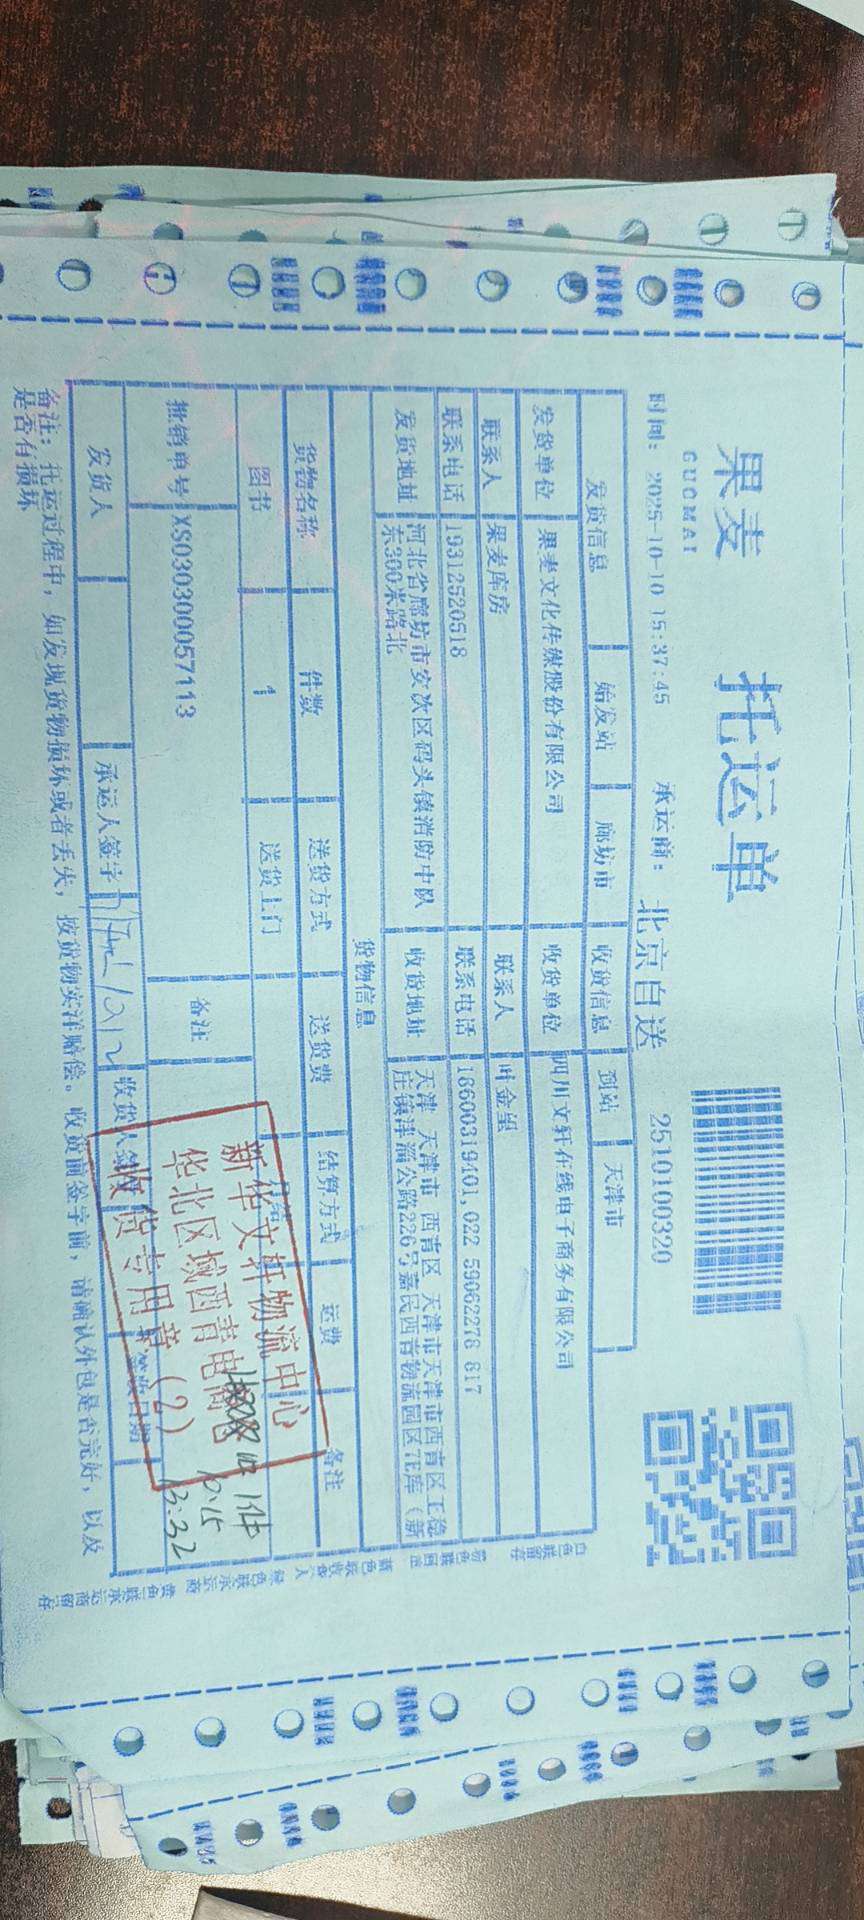 果麦
GUOMAI
托运单
2510100320
时间: 2025-10-10 15:37:45 承运商: 北京自送
发货信息 始发站 廊坊市 收货信息 到站 天津市
发货单位 果麦文化传媒股份有限公司 收货单位 四川文轩在线电子商务有限公司
联系人 果麦库房 联系人 叶金玺
联系电话 19312520518 联系电话 18600319401,022 59062278 817
发货地址 河北省廊坊市安次区码头镇消防中队
东300米路北
收货地址 天津 天津市 西青区 天津市天津市西青区王稳
庄镇津淄公路226号嘉民西青物流园区7E库(新
货物信息
货物名称 件数 送货方式 送货费 结算方式 运费 备注
图书 1 送货上门
批销单号 XS030300057113 备注
发货人 承运人签字 收货人签 签收日期
新华文轩物流中心
华北区域西青电商
收货专用章(2)
收1件
10.15
13:32
备注: 托运过程中, 如发现货物损坏或者丢失, 按货物实洋赔偿。收货前签字前, 请确认外包是否完好, 以及
是否有损坏
白色联留存